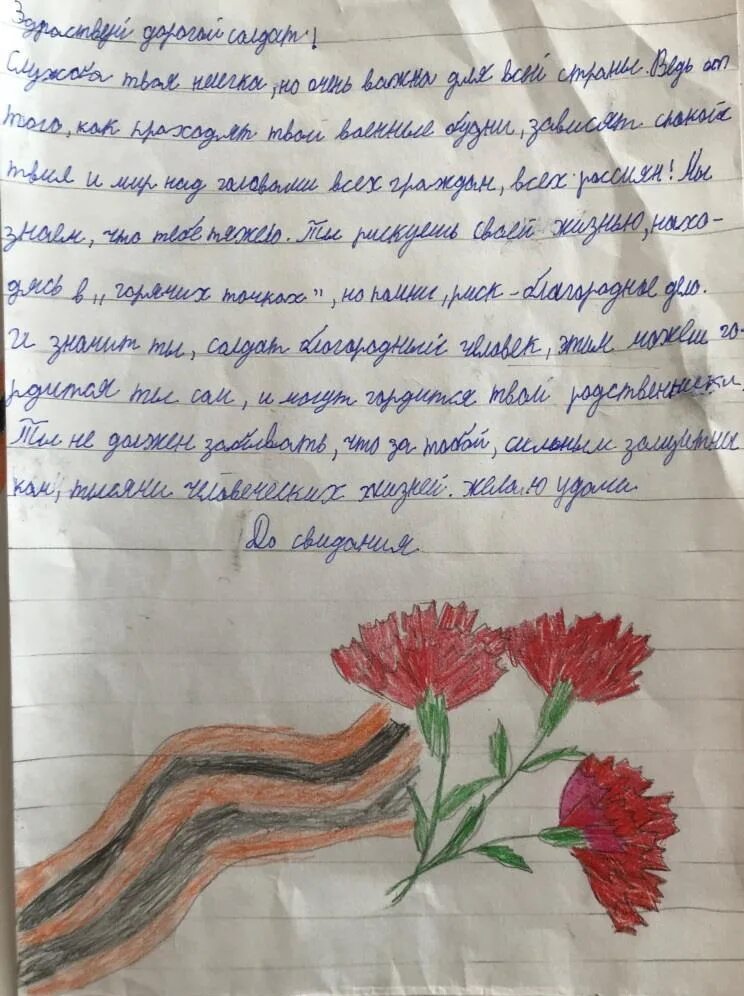 Здраствуй дорогой солдат!
Служба твоя нелегка, но очень важна для всей страны. Ведь от
того, как проходят твои военные будни, зависят спокойс
твие и мир над головами всех граждан, всех россиян! Мы
знаем, что тебе тяжело. Ты рискуешь своей жизнью, нахо-
дясь в „горячих точках", но помни, риск - благородное дело.
И значит ты, солдат благородный человек, этим можеш го-
рдится ты сам, и могут гордится твои родственники.
Ты не должен забывать, что за тобой, сильным защитни
ком, тысячи человеческих жизней. желаю удачи.
До свидания.